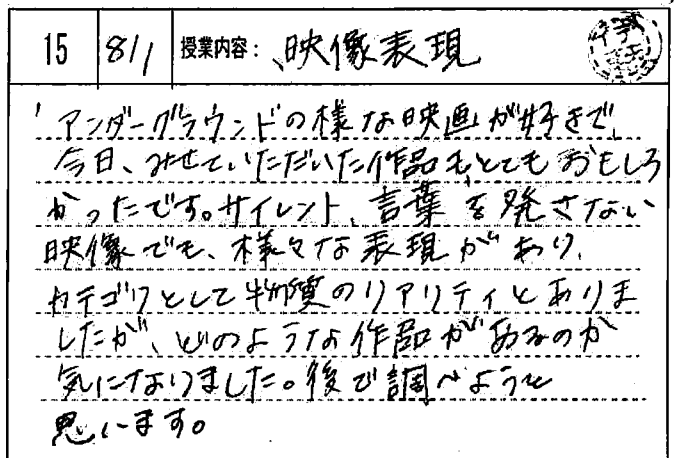 15 8/1 授業内容: 映像表現
アンダーグラウンドの様な映画が好きで、
今日、みせていただいた作品もとてもおもしろ
かったです。サイレント、言葉を発さない
映像でも、様々な表現があり、
カテゴリとして物質のリアリティとありま
したが、どのような作品があるのか
気になりました。後で調べようと
思います。